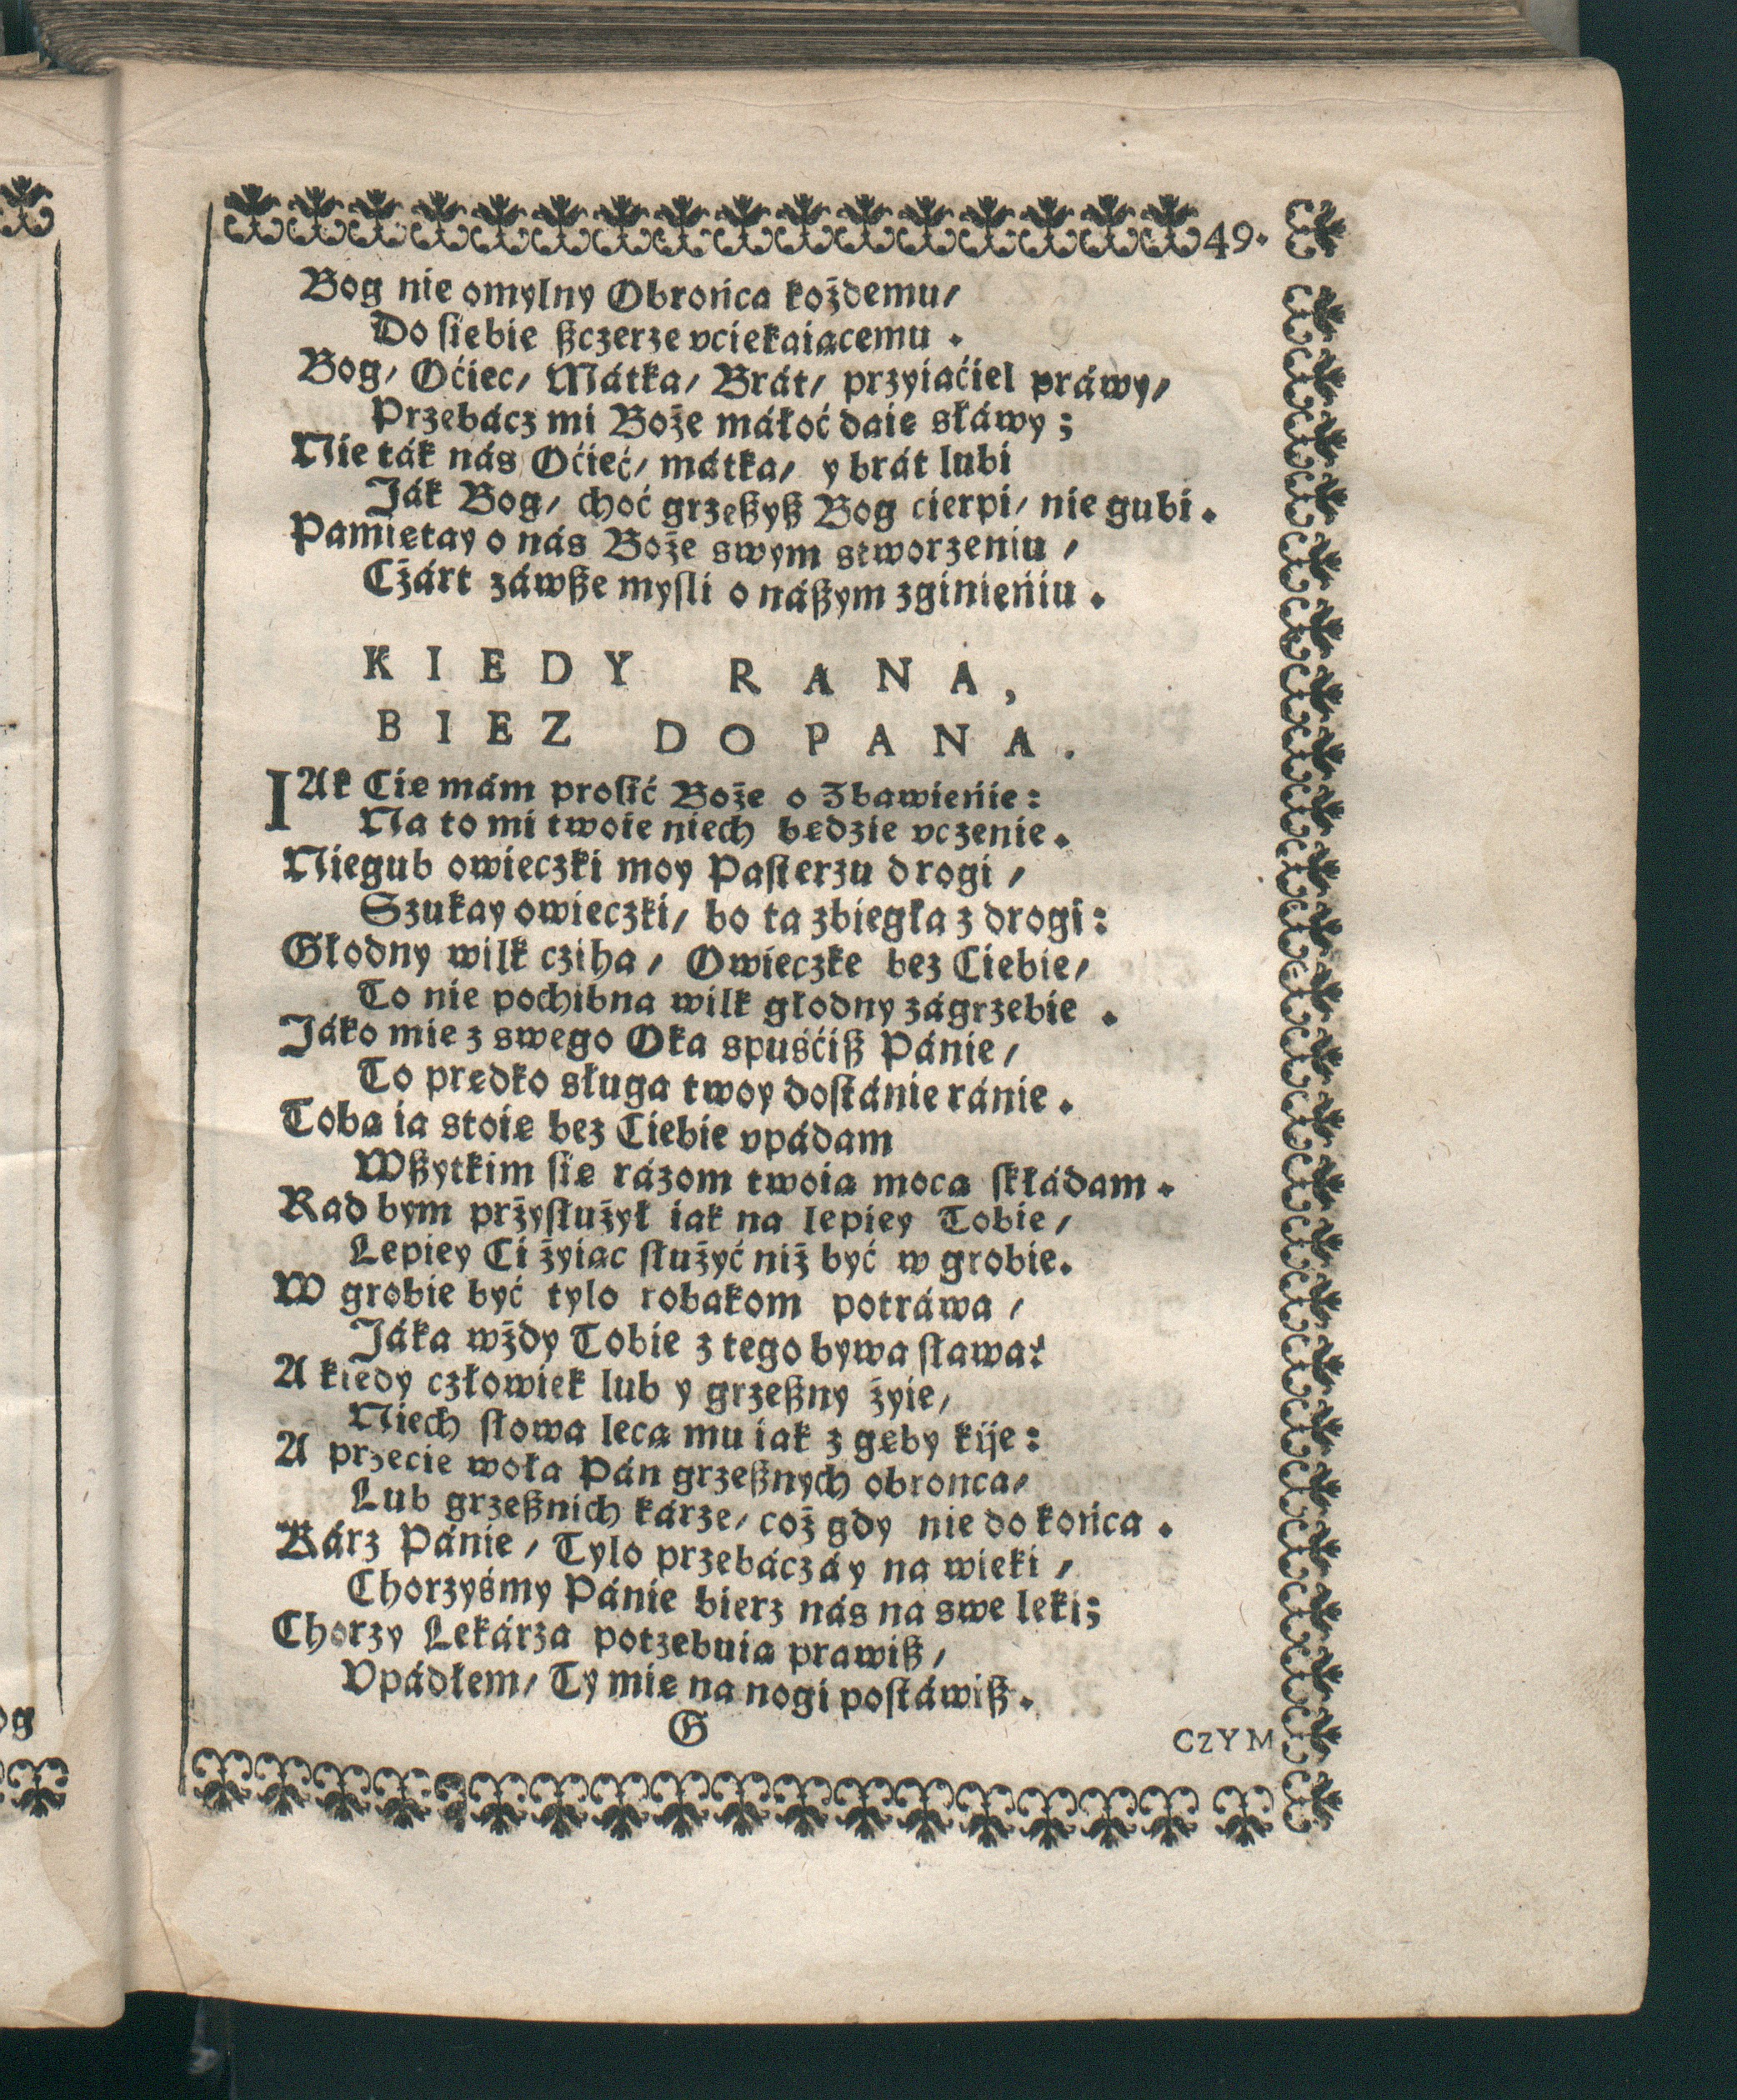 49.
Bog nie omylny Obrońca kożdemu/
Do ſiebie ßczerze vciekaiącemu.
Bog/ Oćiec/ Mátka/ Brát/ przyiaćiel práwy/
Przebácz mi Boże máłoć daię słáwy;
Nie ták nás Oćieć/ mátka/ y brát lubi
Ják Bog/ choć grzeßyß Bog cierpi/ nie gubi.
Pamiętay o nás Boże swym stworzeniu/
Cżárt záwße myſli o náßym zginieńiu.
KIEDY RANA,
BIEZ DO PANA.
IAk Cię mám proſić Boże o Zbawieńie:
Na to mi twoie niech będzie vczenie.
Niegub owieczki moy Paſterzu drogi/
Szukay owieczki/ bo ta zbiegła z drogi:
Głodny wilk cziha/ Owieczkę bez Ciebie/
To nie pochibna wilk głodny zágrzebie.
Jáko mie z swego Oka spuśćiß Pánie/
To prędko sługa twoy doſtánie ránie.
Tobą ia stoię bez Ciebie vpádam
Wßytkim ſię rázom twoią mocą ſkłádam.
Rad bym prżyſłużył iak na lepiey Tobie/
Lepiey Ci żyiąc ſłużyć niż być w grobie.
W grobie być tylo robakom potráwa/
Jáka wżdy Tobie z tego bywa ſława?
A kiedy człowiek lub y grzeßny żyie/
Niech ſłowa lecą mu iak z gęby kije:
A przecie woła Pán grzeßnych obronca/
Lub grzeßnich kárze/ coż gdy nie do końca.
Kárz Pánie/ Tylo przebáczáy na wieki/
Chorzyśmy Pánie bierz nás na swe leki;
Chorzy Lekárza potzebuią prawiß/
Vpádłem/ Ty mię na nogi poſtáwiß.
G
CZYM
og